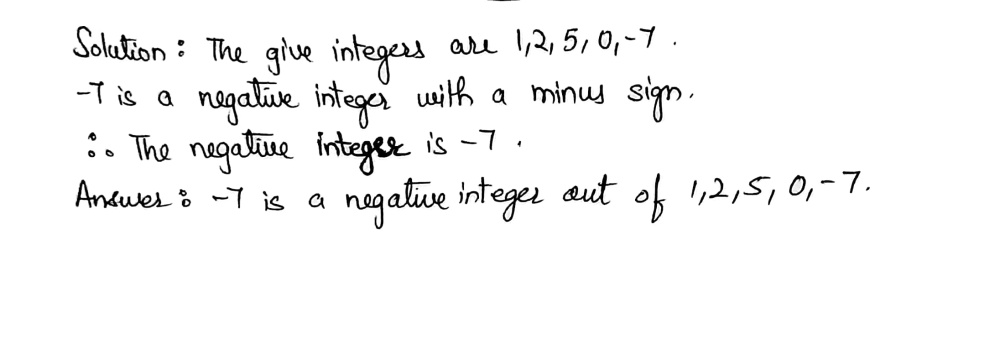 Solution : The give integers are 1,2,5,0,-7.
-7 is a negative integer with a minus sign.
∴ The negative integer is -7.
Answer : -7 is a negative integer out of 1,2,5,0,-7.